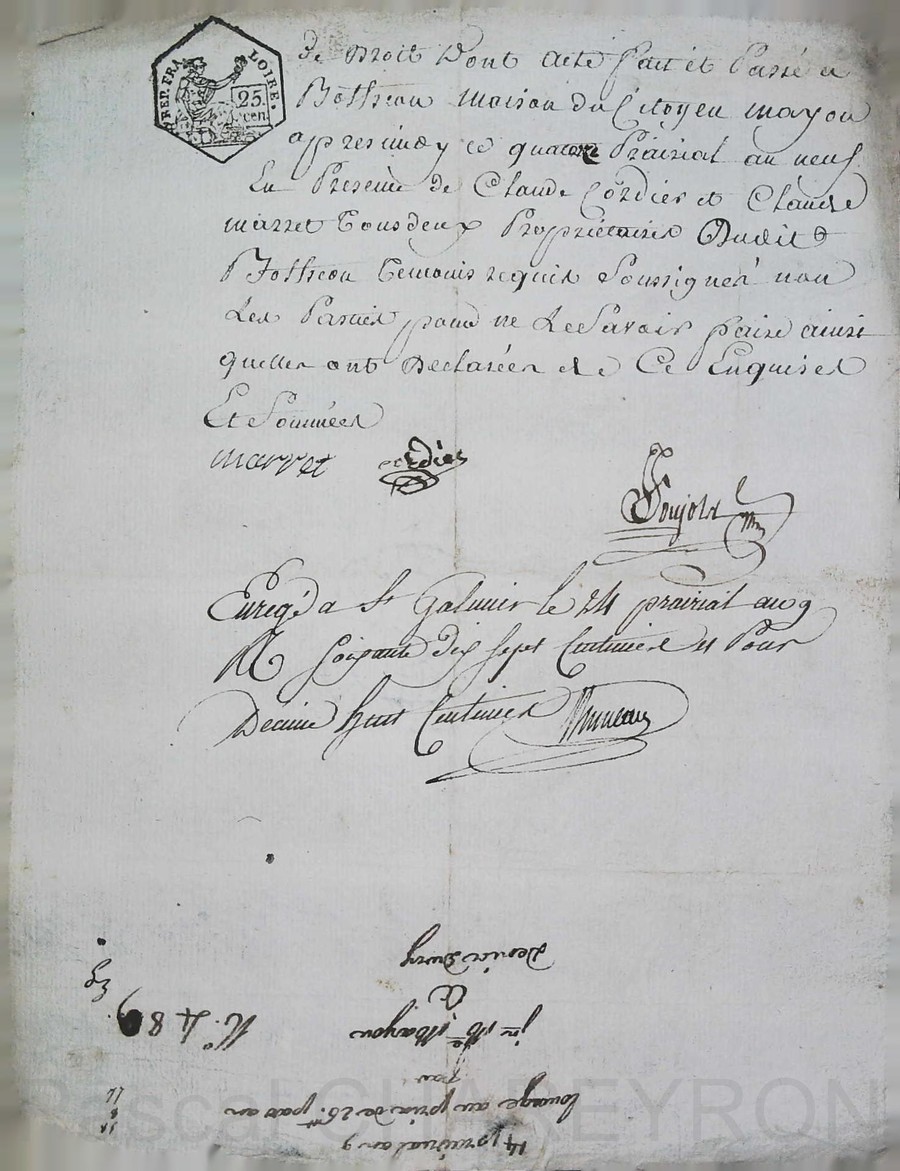 REP. FRA. LOIRE.
25. cen
De Droit Dont acte fait et Passé a
Bothéon maison du Citoyen mayou
apres midy ce quatorze Prairial an neuf
En Presence de Claude Cordier et Claude
marret Tousdeux Propriétaires Dudit
Bothéon Temoins requis Soussignés non
Les Parties pour ne Le Savoir faire ainsi
quelles ont Declarées de Ce Enquises
Et Sommées
marret cordier
Enregé a St Galmier le 24 prairial an 9
R Soixante dix sept Centimes et Pour
Decime huit Centimes
14 prairial an 9
louage au prix de 26 par an
par
Mayou
&
N.° 489